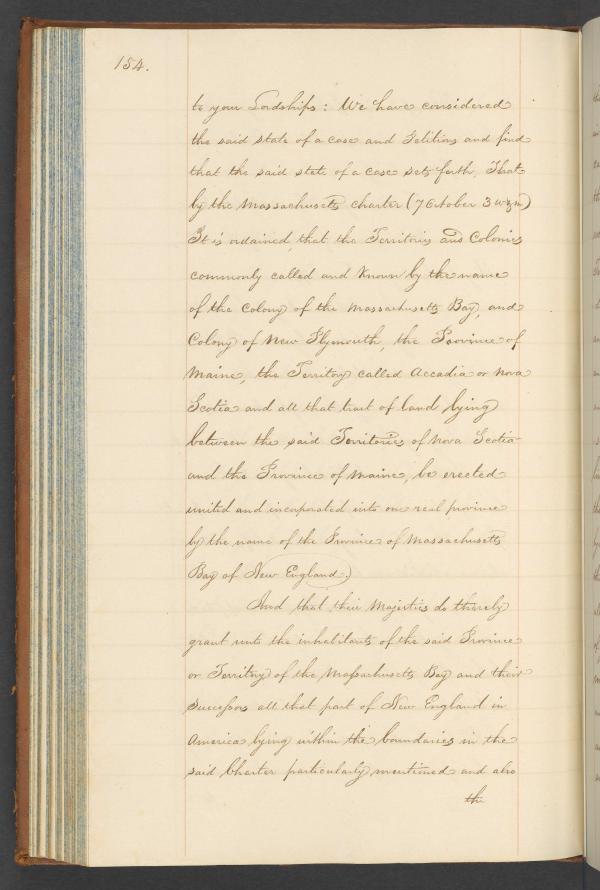 154.
to your Lordships: We have considered
the said state of a case and Petitions and find
that the said state of a case sets forth, That
by the Massachusetts charter (7 October 3 w & m)
It is ordained, that the Territories and Colonies
commonly called and Known by the name
of the Colony of the Massachusetts Bay, and
Colony of New Plymouth, the Province of
Maine, the Territory called Accadia or Nova
Scotia and all that tract of land lying
between the said Territories of Nova Scotia
and the Province of Maine, be erected
united and incorporated into one real province
by the name of the Province of Massachusetts
Bay of New England.)
And that their Majesties do thereby
grant unto the inhabitants of the said Province
or Territory of the Massachusetts Bay and their
Successors all that part of New England in
America lying within the boundaries in the
said Charter particularly mentioned and also
the